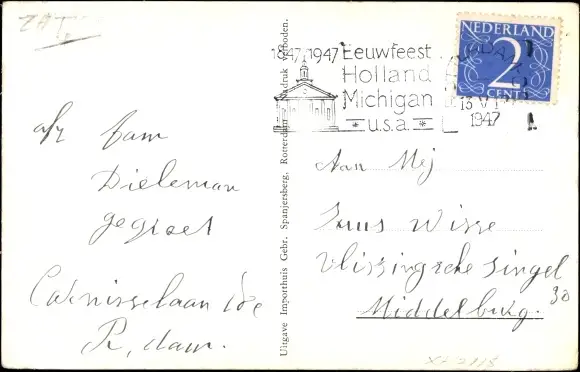 ZAT.
1847 1947 Eeuwfeest
Holland
Michigan
u.s.a.
NEDERLAND
2
CENT
13 V
1947
afz fam
Dieleman
gegroet
Carnisselaan
R,dam.
Uitgave Importhuis Gebr. Spanjersberg, Rotterdam Nadruk verboden.
Aan Mej
Wisse
Vlissingsche singel
30
Middelburg.